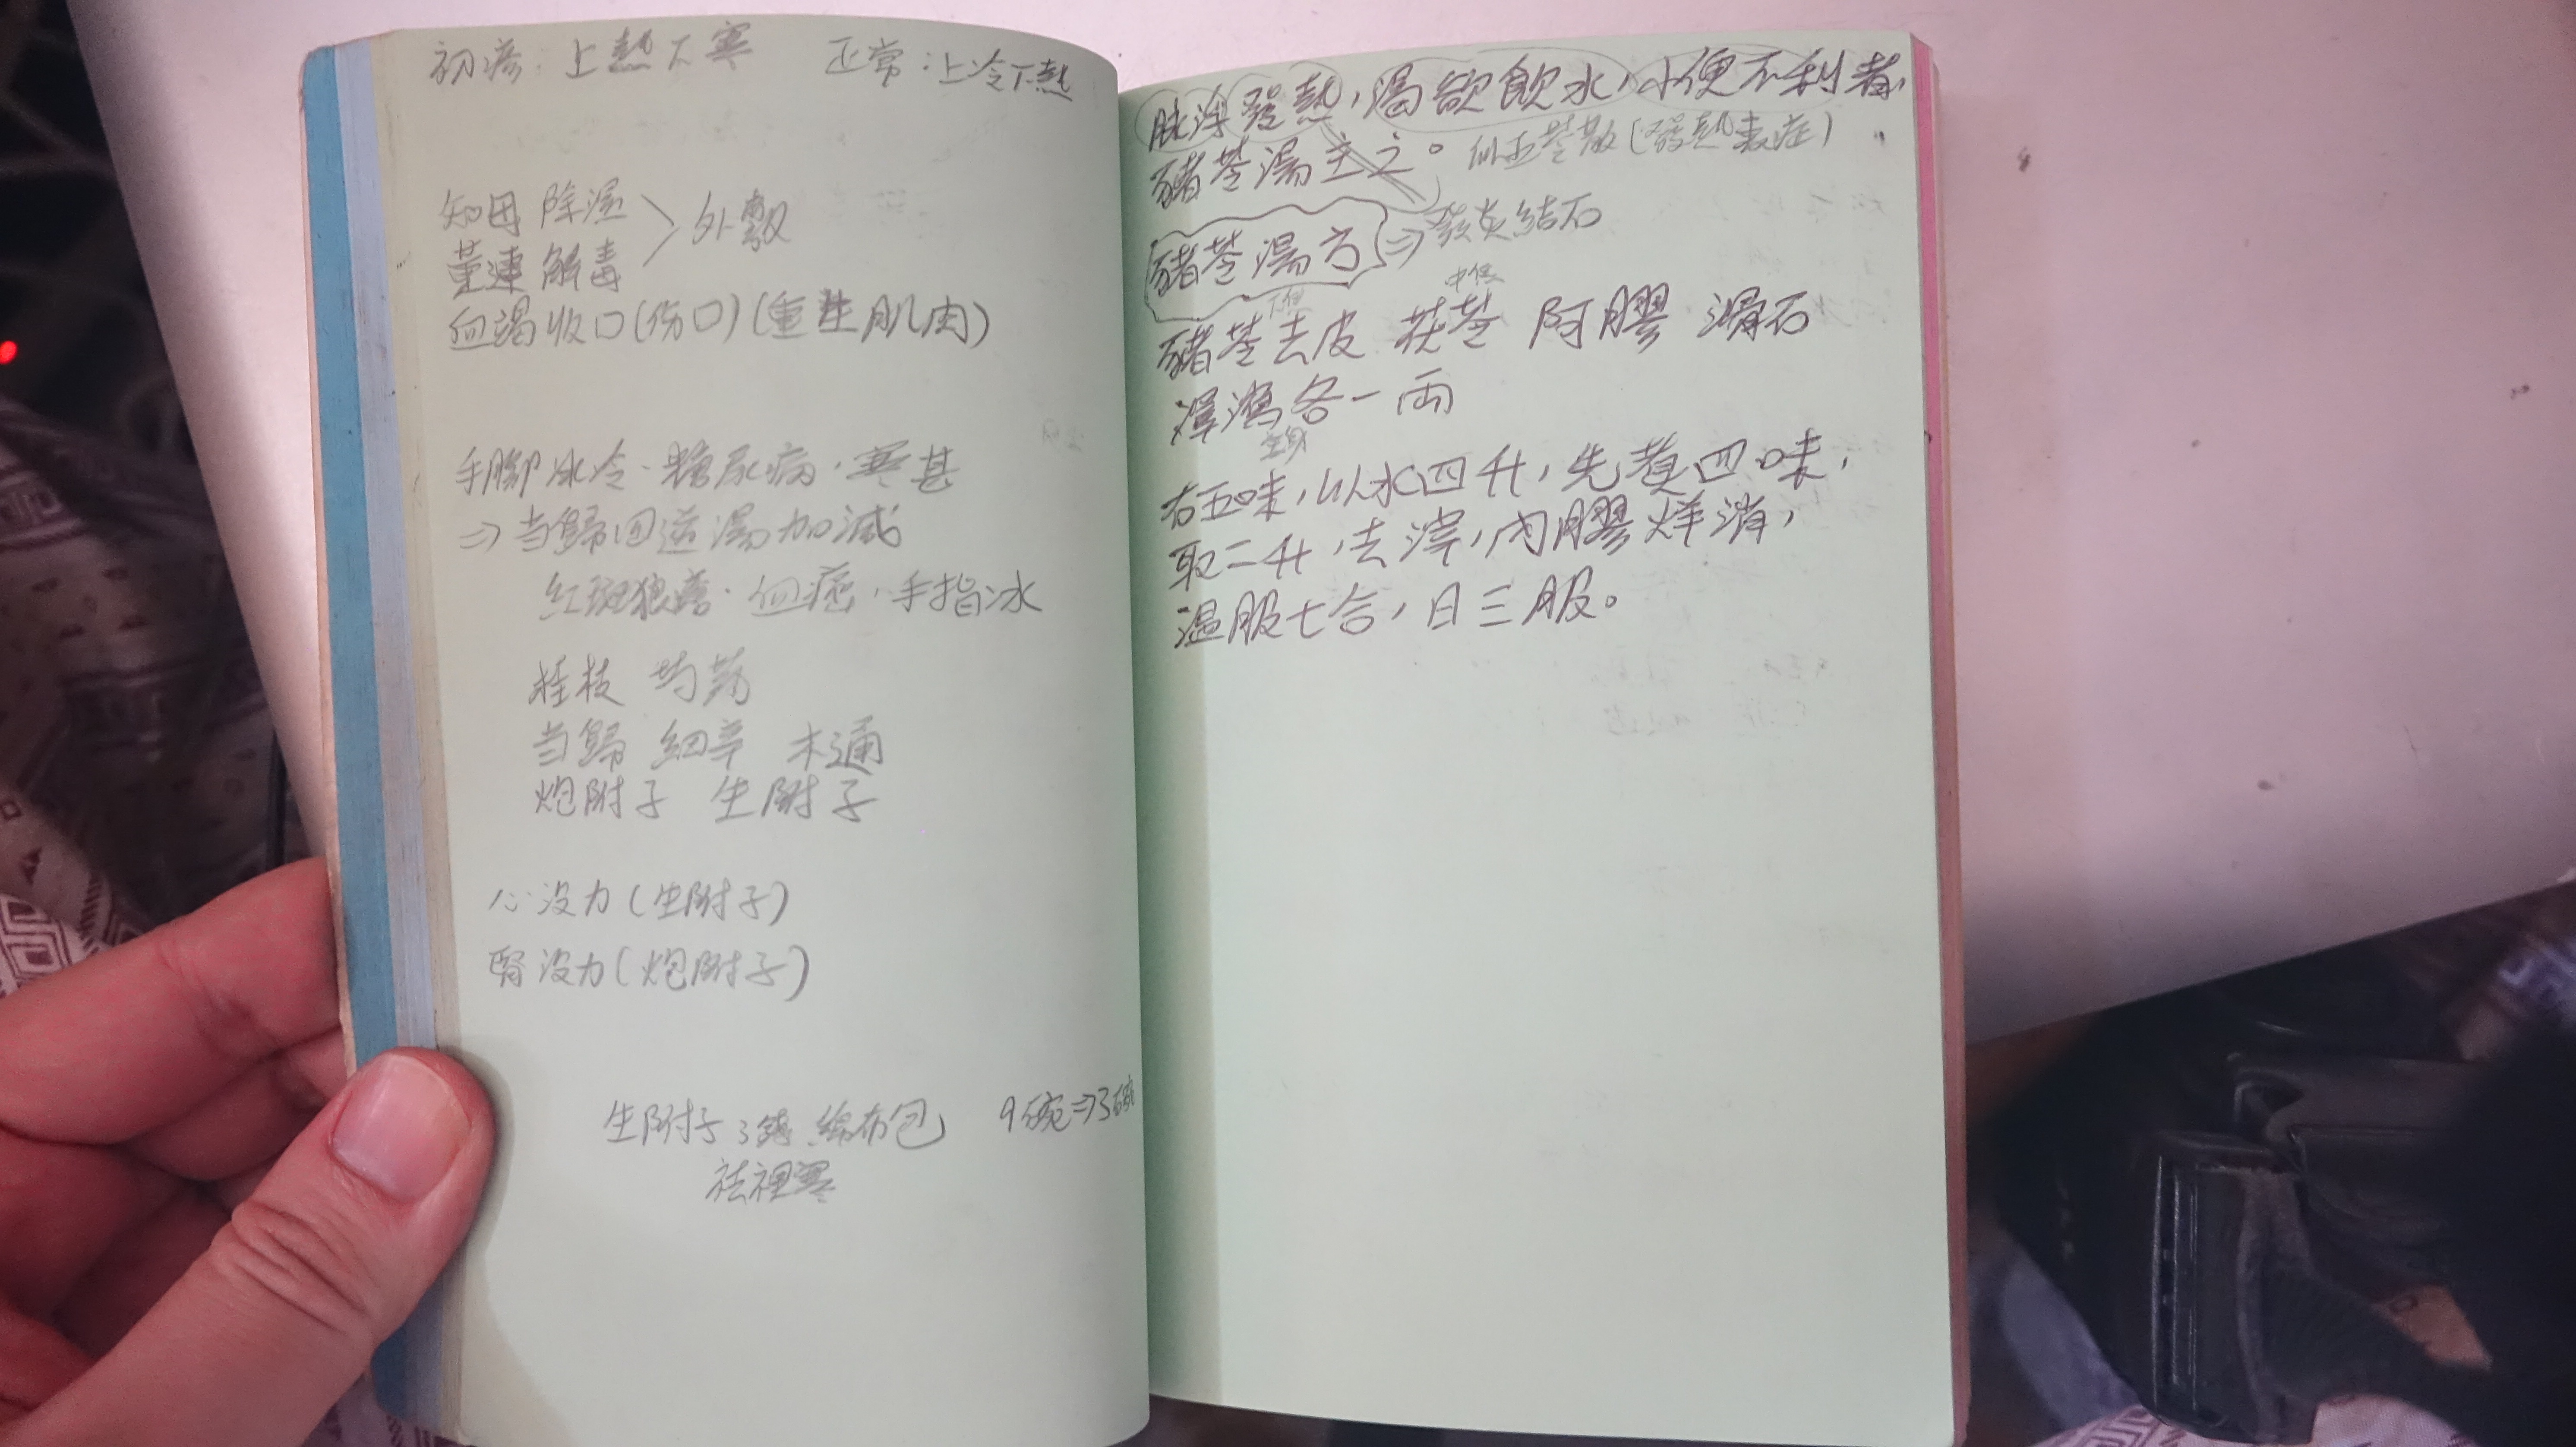 初診：上熱下寒　正常：上冷下熱
知母 除濕
黃連 解毒 > 外敷
血竭收口(伤口)(重生肌肉)
手腳冰冷．糖尿病．寒甚
⇒当歸四逆湯加減
紅斑狼瘡．血癌．手指冰
桂枝 芍藥
当歸 細辛 木通
炮附子 生附子
心沒力(生附子)
腎沒力(炮附子)
生附子3錢 綿布包 9碗⇒3碗
祛裡寒
脉浮發熱，渴欲飲水，小便不利者，
豬苓湯主之。似五苓散(發熱表症)
豬苓湯方⇒發炎結石
下焦 中焦
豬苓去皮 茯苓 阿膠 滑石
澤瀉各一兩
全身
右五味，以水四升，先煮四味，
取二升，去滓，內膠烊消，
溫服七合，日三服。